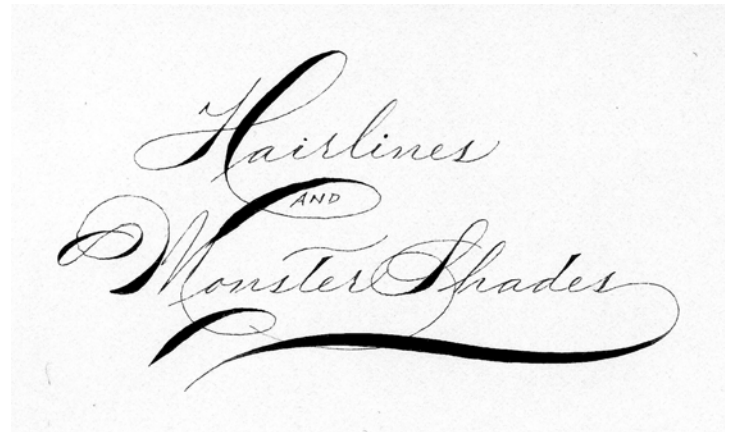 Hairlines
AND
Monster Shades